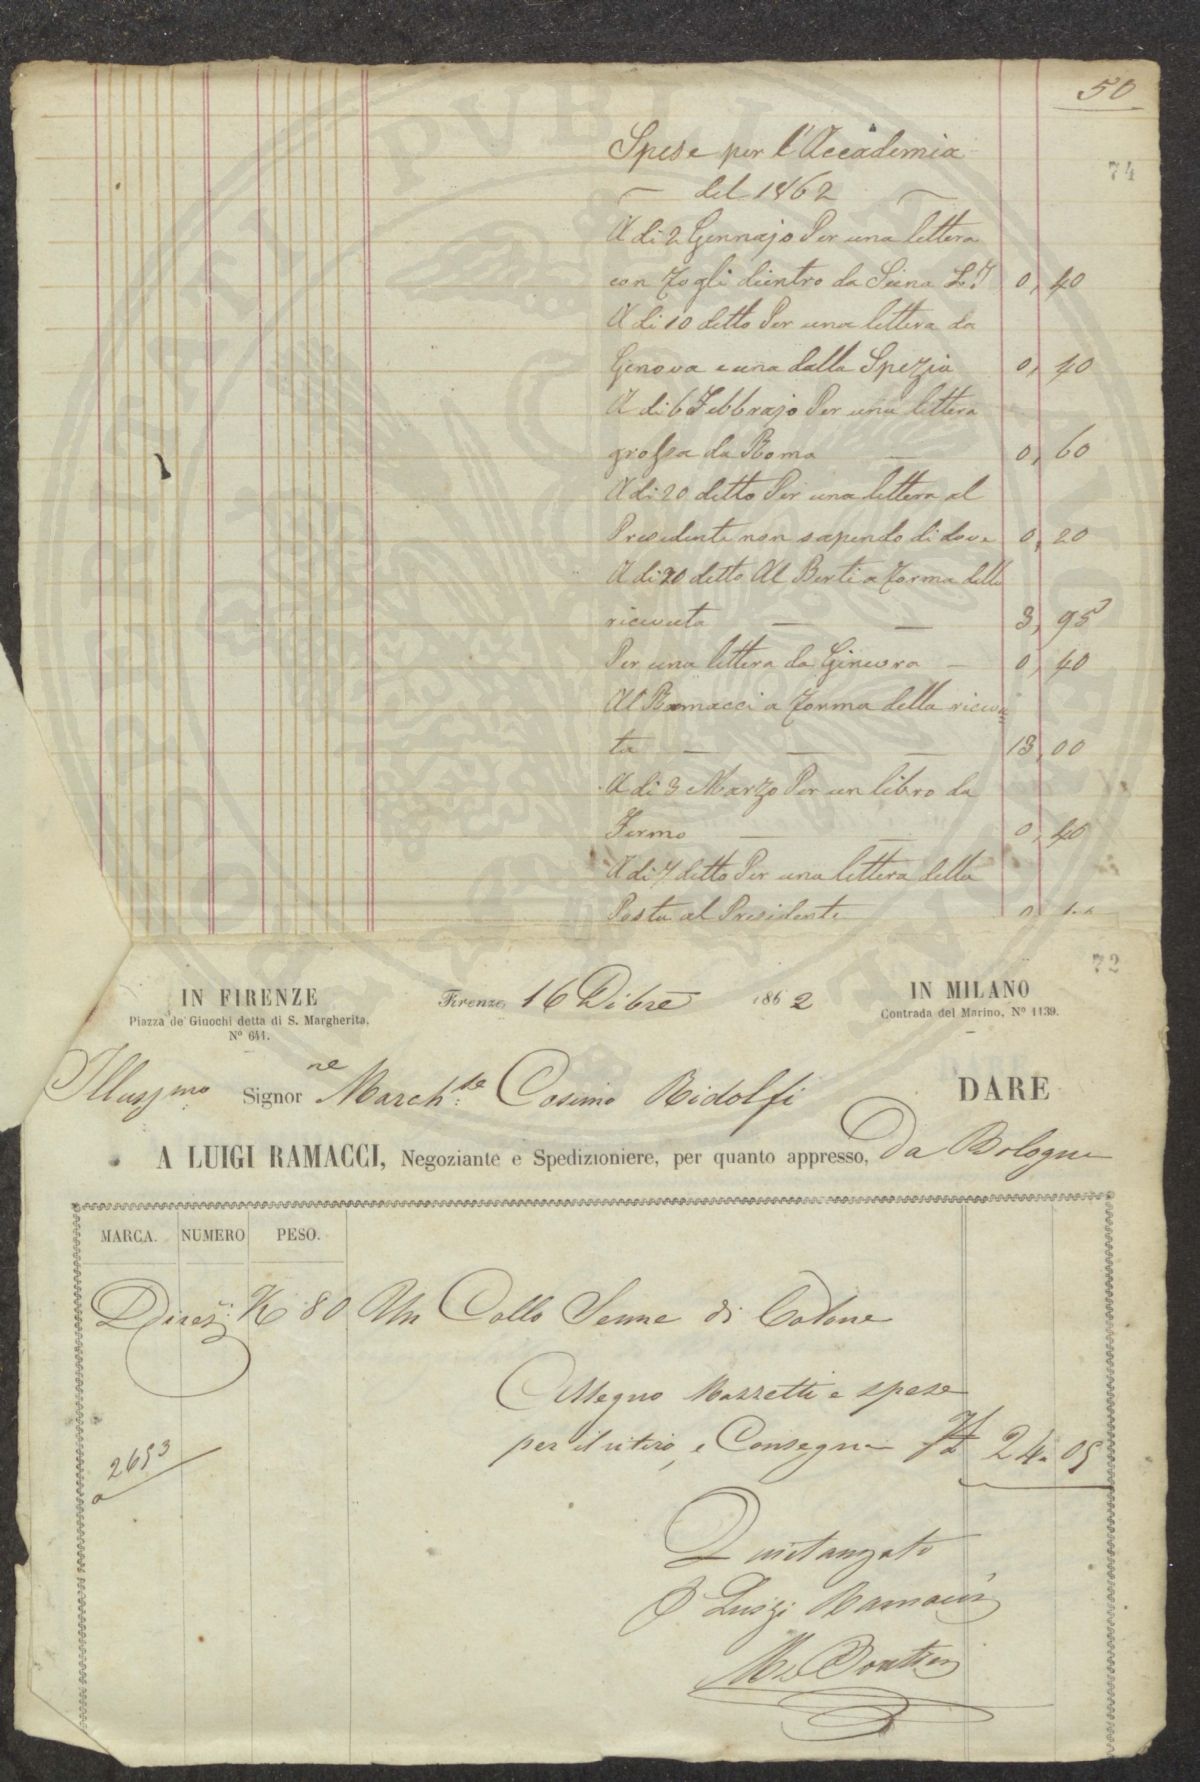 50
74
Spese per l'Accademia
del 1862
A di 2 Gennajo Per una lettera
con fogli dientro da Siena L.i 0, 40
A di 10 detto Per una lettera da
Genova e una dalla Spezia 0, 40
A di 6 Febbrajo Per una lettera
grossa da Roma — 0, 60
A di 20 detto Per una lettera al
Presidente non sapendo di dove 0, 20
A di 20 detto Al Berti a forma della
ricevuta — — 3, 95
Per una lettera da Ginevra — 0, 40
Al Ramacci a forma della ricevu
ta — — — 13, 00
A di 3 Marzo Per un libro da
Fermo — — 0, 40
A di 7 detto Per una lettera della
Posta al Presidente
72
IN FIRENZE
Piazza de' Giuochi detta di S. Margherita,
N° 641.
Firenze, 16 Dibre 1862
IN MILANO
Contrada del Marino, N° 1139.
Illus.mo Signor ne March.se Cosimo Ridolfi DARE
A LUIGI RAMACCI, Negoziante e Spedizioniere, per quanto appresso, Da Bologna
MARCA. NUMERO PESO.
K 80 Un Collo Seme di Cotone
Assegno Mazzetti e spese
per il ritiro, e Consegna 24. 05
2653
Quietanzato
P Luigi Ramacci